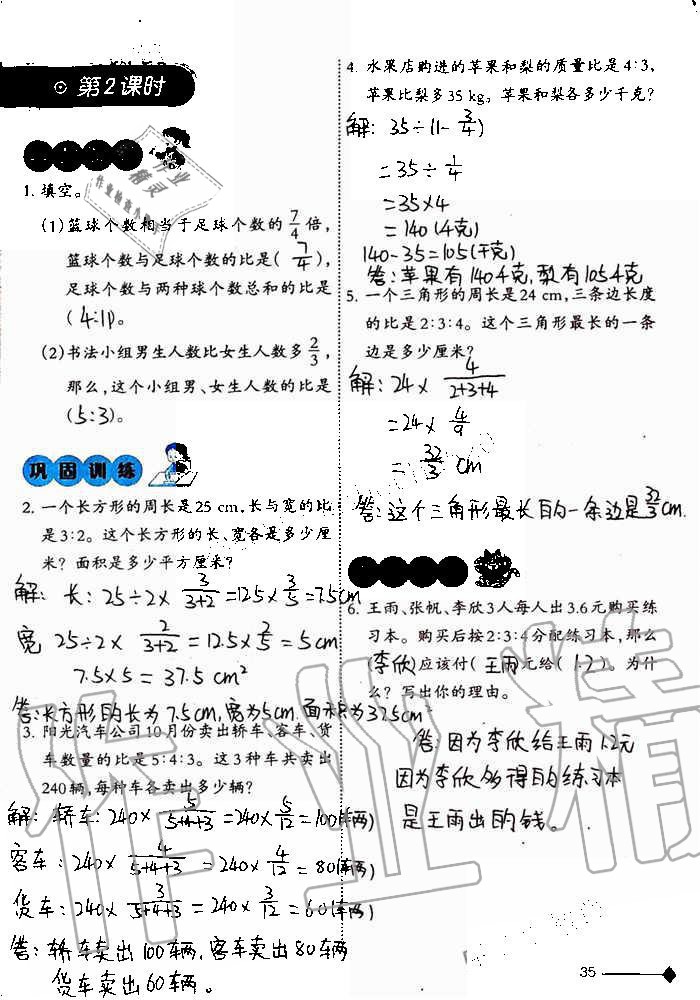 第2课时
1. 填空。
(1)篮球个数相当于足球个数的7/4倍，
篮球个数与足球个数的比是(7/4)，
足球个数与两种球个数总和的比是
(4:11)。
(2)书法小组男生人数比女生人数多2/3，
那么，这个小组男、女生人数的比是
(5:3)。
巩固训练
2. 一个长方形的周长是25 cm，长与宽的比
是3:2。这个长方形的长、宽各是多少厘
米？面积是多少平方厘米？
解：长：25÷2×3/(3+2)=12.5×3/5=7.5cm
宽 25÷2×2/(3+2)=12.5×2/5=5cm
7.5×5=37.5cm²
答：长方形的长为7.5cm，宽为5cm.面积为37.5cm²
3. 阳光汽车公司10月份卖出轿车、客车、货
车数量的比是5:4:3。这3种车共卖出
240辆，每种车各卖出多少辆？
解：轿车：240×5/(5+4+3)=240×5/12=100(辆)
客车：240×4/(5+4+3)=240×4/12=80(辆)
货车：240×3/(5+4+3)=240×3/12=60(辆)
答：轿车卖出100辆，客车卖出80辆
货车卖出60辆。
4. 水果店购进的苹果和梨的质量比是4:3，
苹果比梨多35 kg。苹果和梨各多少千克？
解：35÷(1-3/4)
=35÷1/4
=35×4
=140(千克)
140-35=105(千克)
答：苹果有140千克，梨有105千克
5. 一个三角形的周长是24 cm，三条边长度
的比是2:3:4。这个三角形最长的一条
边是多少厘米？
解：24×4/(2+3+4)
=24×4/9
=32/3cm
答：这个三角形最长的一条边是32/3cm
6. 王雨、张帆、李欣3人每人出3.6元购买练
习本。购买后按2:3:4分配练习本，那么
(李欣)应该付(王雨)元给(1.2)。为什
么？写出你的理由。
答：因为李欣给王雨1.2元
因为李欣多得的练习本
是王雨出的钱。
35
作业精灵